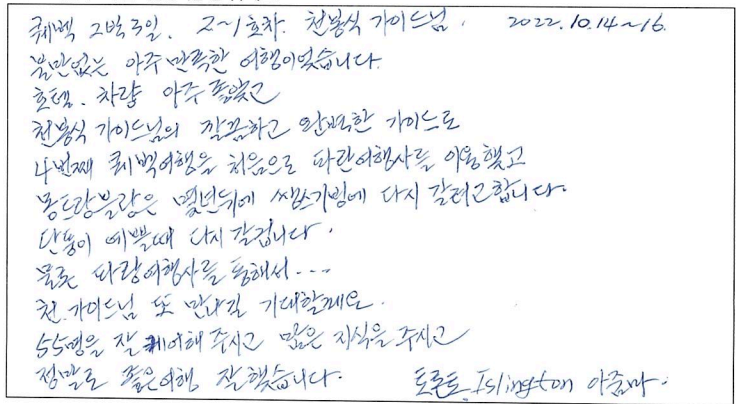 퀘벡 2박3일. 2~1호차. 천봉식 가이드님. 2022.10.14~16.
불만없는 아주 만족한 여행이었습니다.
호텔. 차량 아주 좋았고
천봉식 가이드님의 깔끔하고 완벽한 가이드로
4번째 퀘벡여행을 처음으로 파란여행사를 이용했고
몽트랑블랑은 몇년뒤에 땡스기빙에 다시 갈려고합니다.
단풍이 예쁠때 다시 갈겁니다.
물론 파랑여행사를 통해서...
천.가이드님 또 만나길 기대할께요.
55명을 잘 케어해 주시고 많은 지식을 주시고
정말로 좋은여행 잘 했습니다. 토론토. Islington 아줌마.